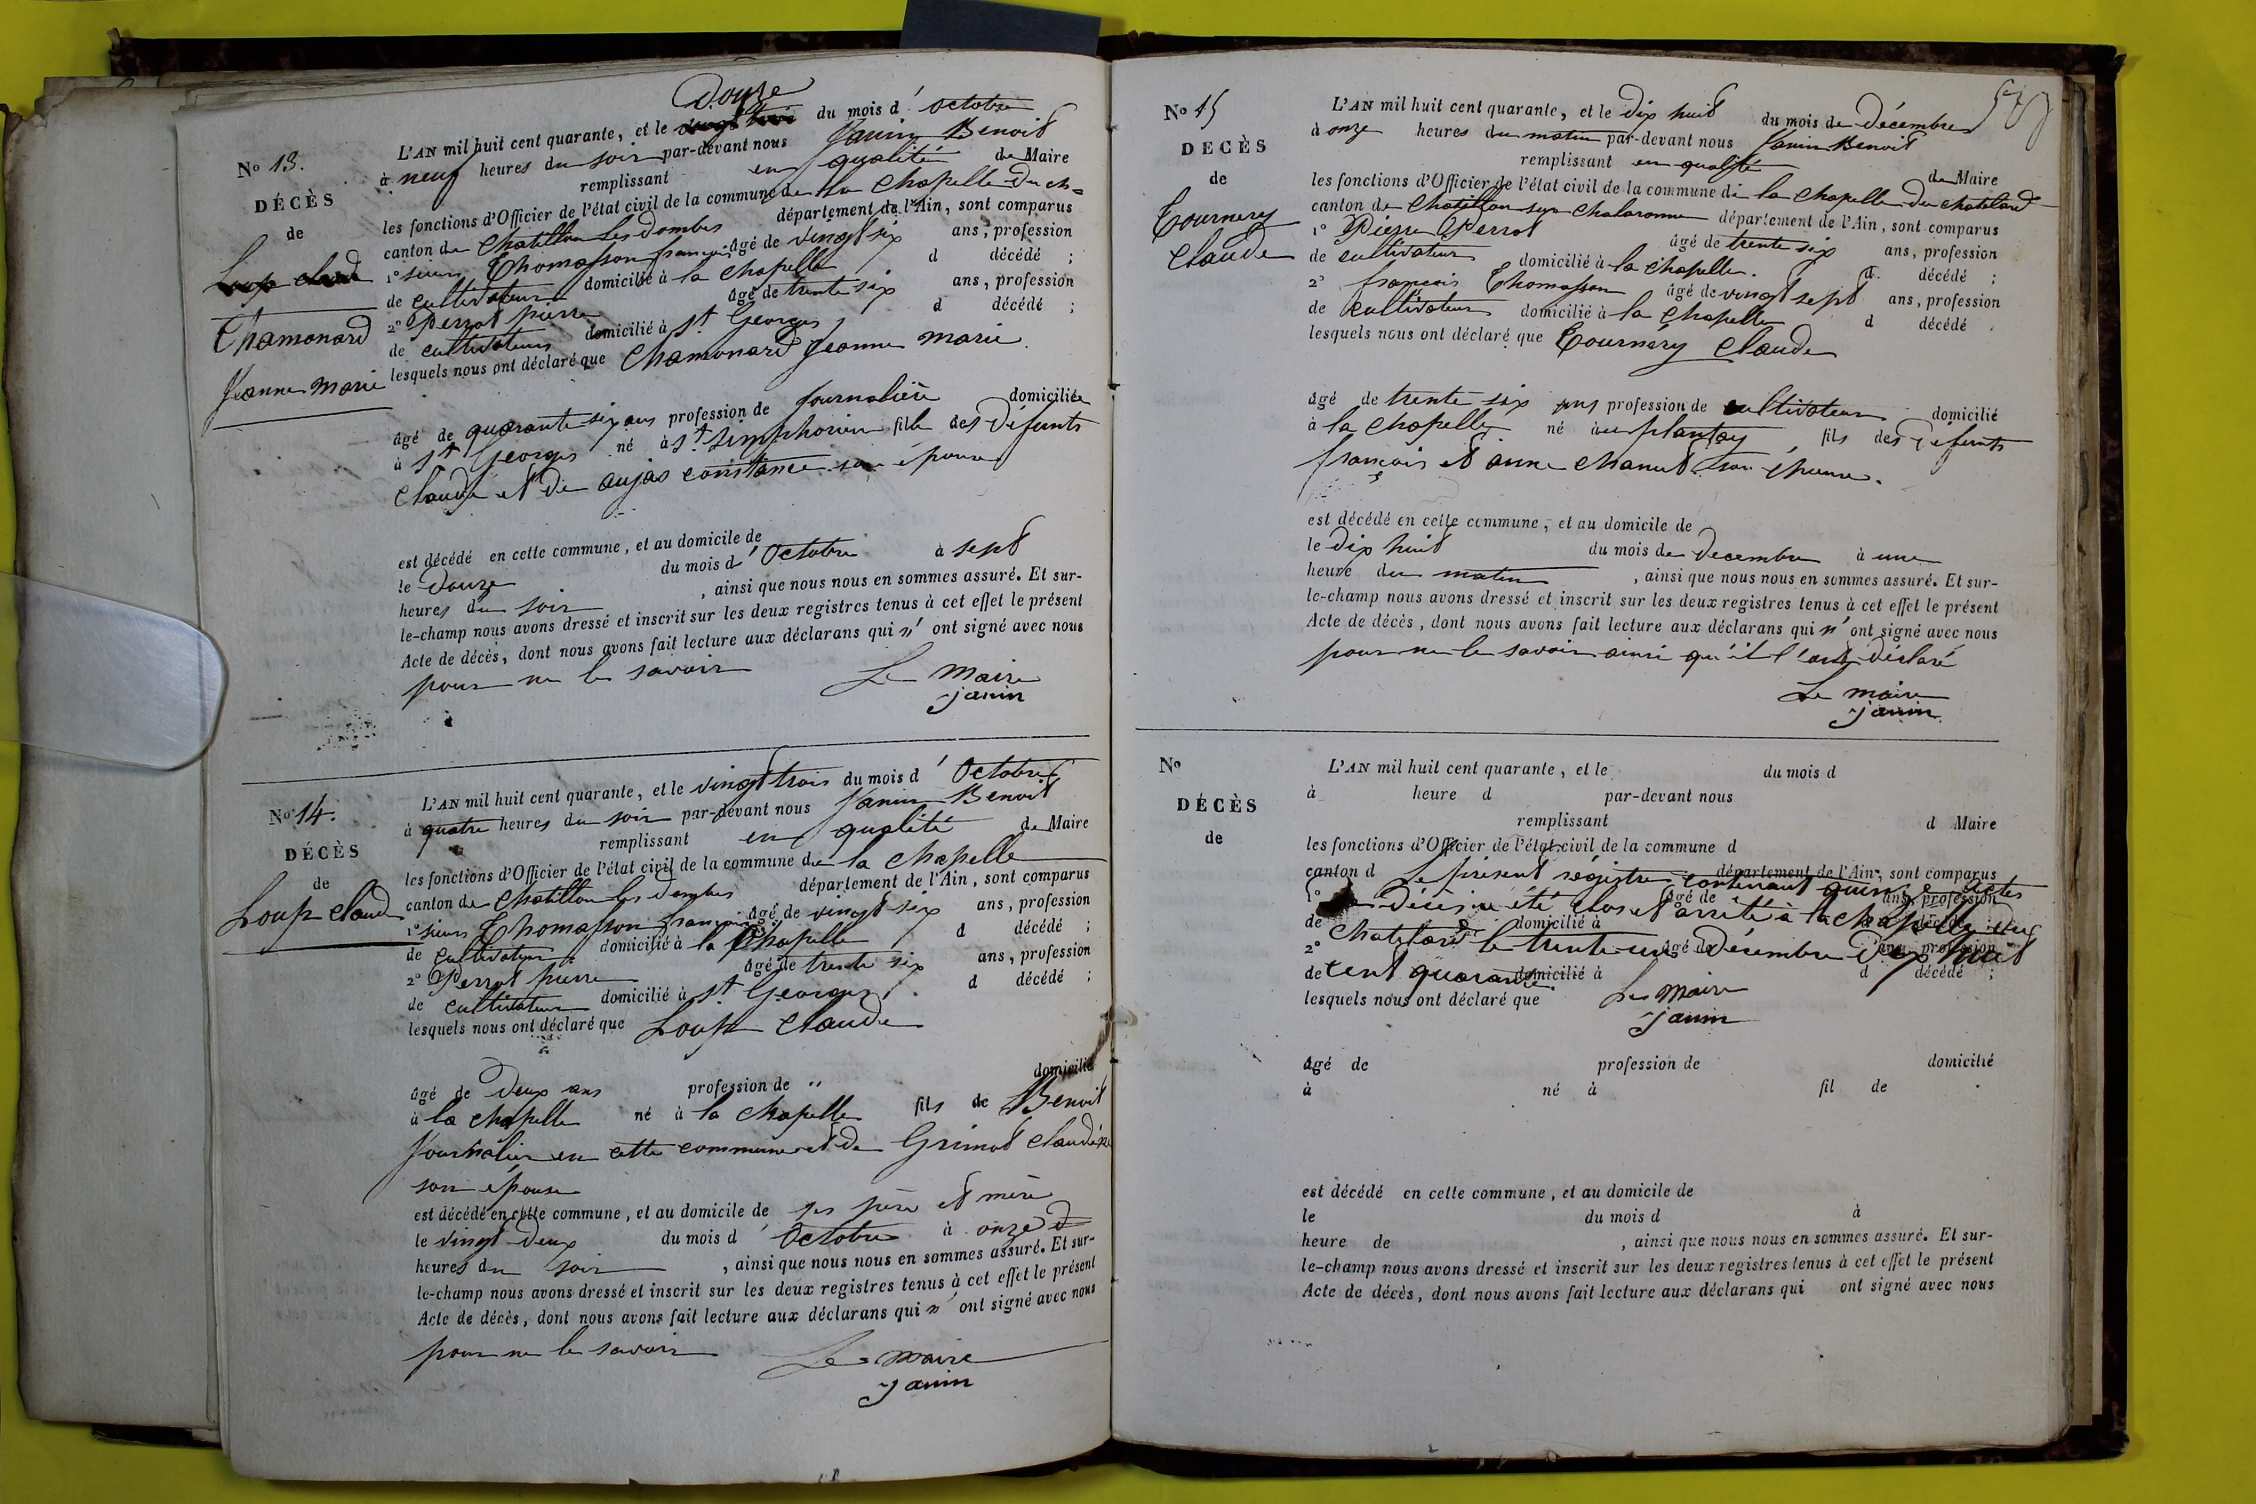 Douze
L'AN mil huit cent quarante, et le vingt trois du mois d' octobre
No 13. à neuf heures du soir par-devant nous Janin Benoit
DÉCÈS remplissant en qualité de Maire
de les fonctions d'Officier de l'état civil de la commune de la chapelle du ch=
canton de Chatillon les dombes département de l'Ain, sont comparus
Loup claud 1° sieurs Thomasson françois âgé de vingt six ans, profession
de cultivateur domicilié à la chapelle d décédé ;
Chamonard 2° Perrot pierre âgé de trente six ans, profession
de cultivateur domicilié à St Georges d décédé ;
Jeanne marie lesquels nous ont déclaré que Chamonard Jeanne marie
âgé de quarante six ans profession de journalière domiciliée
à St Georges né à St Simphorien fille des défunts
Claude et de aujas constance son épouse
est décédé en cette commune, et au domicile de
le Douze du mois d' Octobre à sept
heures du soir , ainsi que nous nous en sommes assuré. Et sur-
le-champ nous avons dressé et inscrit sur les deux registres tenus à cet effet le présent
Acte de décès, dont nous avons fait lecture aux déclarans qui n' ont signé avec nous
pour ne le savoir Le Maire
janin
No 14. L'AN mil huit cent quarante, et le vingt trois du mois d' Octobre
à quatre heures du soir par-devant nous Janin Benoit
DÉCÈS remplissant en qualité de Maire
de les fonctions d'Officier de l'état civil de la commune de la chapelle
Loup claude canton de Chatillon les dombes département de l'Ain, sont comparus
1° sieurs Thomasson françois âgé de vingt six ans, profession
de cultivateur domicilié à la chapelle d décédé ;
2° Perrot pierre âgé de trente six ans, profession
de cultivateur domicilié à St Georges d décédé ;
lesquels nous ont déclaré que Loup claude
âgé de Deux ans profession de " domicilié
à la chapelle né à la chapelle fils de Benoit
Journalier en cette commune et de Grimot claudine
son épouse
est décédé en cette commune, et au domicile de ses père et mère
le vingt Deux du mois d' Octobre à onze
heures du soir , ainsi que nous nous en sommes assuré. Et sur-
le-champ nous avons dressé et inscrit sur les deux registres tenus à cet effet le présent
Acte de décès, dont nous avons fait lecture aux déclarans qui n' ont signé avec nous
pour ne le savoir Le maire
janin
No 15 L'AN mil huit cent quarante, et le Dix huit du mois de décembre
à onze heures du matin par-devant nous Janin Benoit
DECÈS remplissant en qualité de Maire
de les fonctions d'Officier de l'état civil de la commune de la chapelle du chatelard
Tournery canton de Chatillon sur chalaronne département de l'Ain, sont comparus
claude 1° Pierre Perrot âgé de trente six ans, profession
de cultivateur domicilié à la chapelle. d décédé ;
2° françois Thomasson âgé de vingt sept ans, profession
de cultivateur domicilié à la chapelle d décédé
lesquels nous ont déclaré que Tournery Claude
âgé de trente six ans profession de cultivateur domicilié
à la chapelle né au plantay fils des défunts
françois et anne chanut son épouse.
est décédé en cette commune, et au domicile de
le Dix huit du mois de Decembre à une
heure du matin , ainsi que nous nous en sommes assuré. Et sur-
le-champ nous avons dressé et inscrit sur les deux registres tenus à cet effet le présent
Acte de décès, dont nous avons fait lecture aux déclarans qui n' ont signé avec nous
pour ne le savoir ainsi qu'il l'ont déclaré
Le maire
janin
No L'AN mil huit cent quarante, et le du mois d
à heure d par-devant nous
DÉCÈS remplissant d Maire
de les fonctions d'Officier de l'état civil de la commune d
canton d département de l'Ain, sont comparus
Le présent régistre contenant quinze actes
1° âgé de ans, profession
de Décès a été clos et arrêté à la chapelle du
de domicilié à d décédé ;
chatelard le trente un décembre Dix huit
2° âgé de ans, profession
cent quarante.
de domicilié à d décédé ;
lesquels nous ont déclaré que Le Maire
janin
âgé de profession de domicilié
à né à fil de
est décédé en cette commune, et au domicile de
le du mois d à
heure de , ainsi que nous nous en sommes assuré. Et sur-
le-champ nous avons dressé et inscrit sur les deux registres tenus à cet effet le présent
Acte de décès, dont nous avons fait lecture aux déclarans qui ont signé avec nous